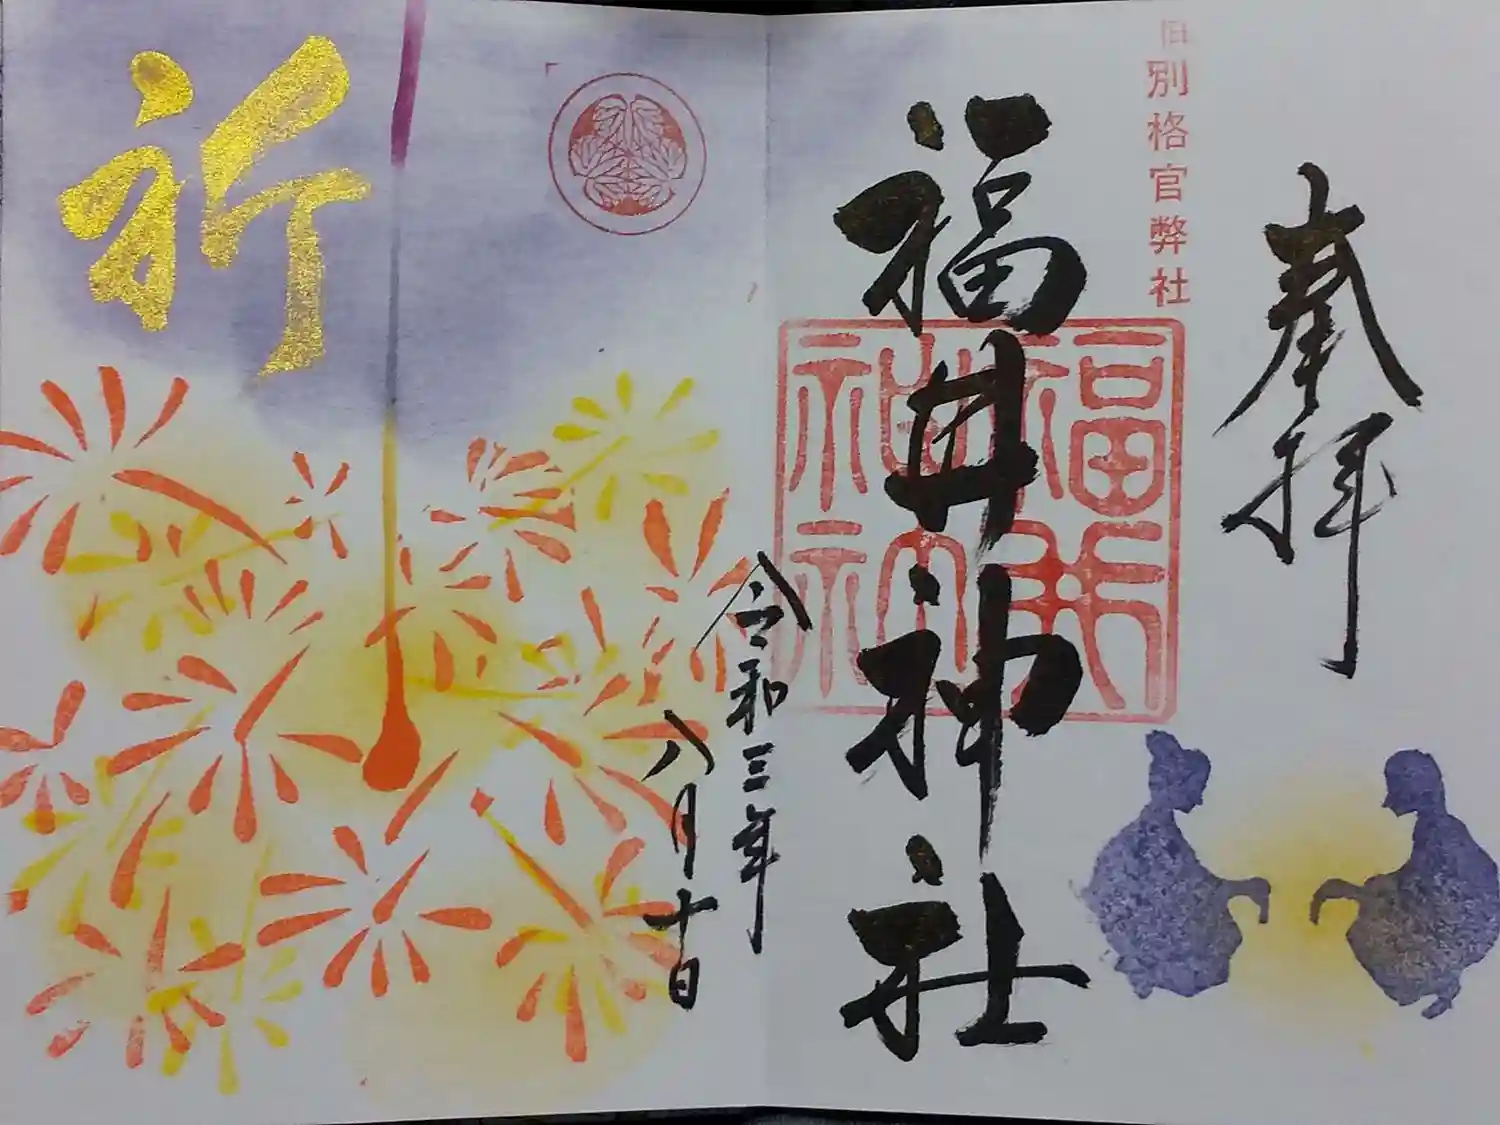 奉拝
旧別格官弊社
福井神社
福井神社
令和三年
八月十日
祈